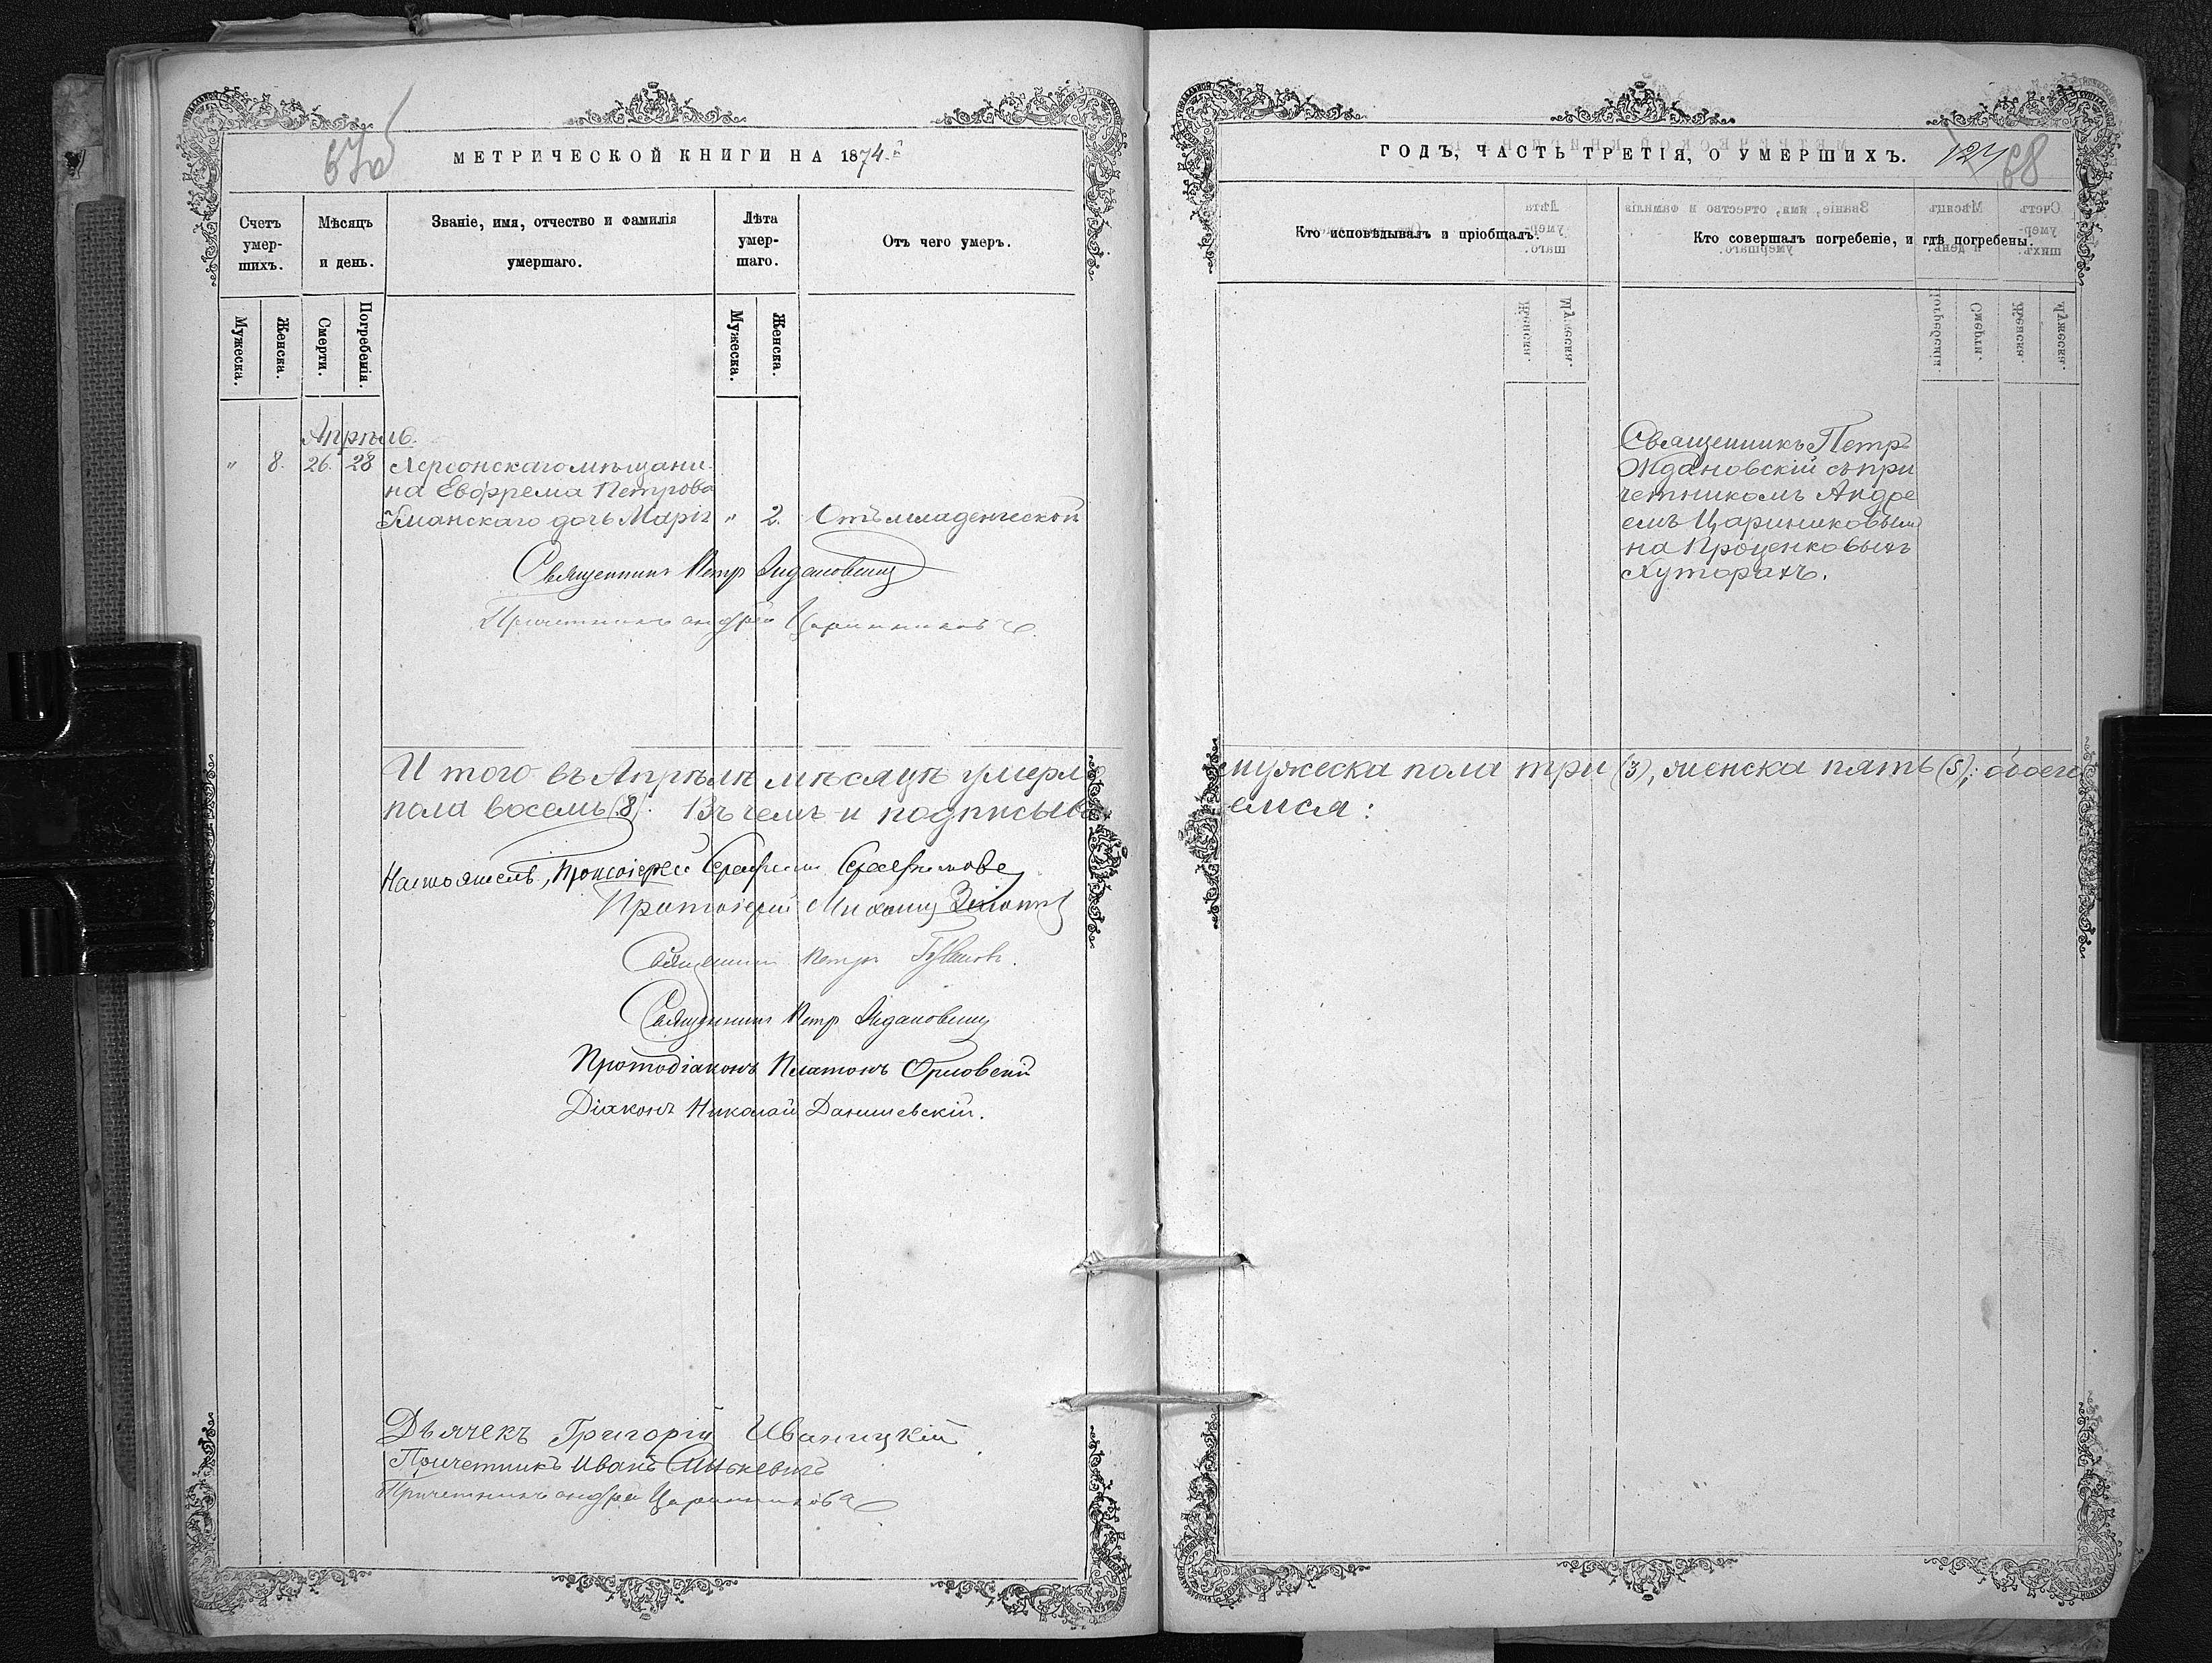 МЕТРИЧЕСКОЙ КНИГИ НА 1874й
Счетъ умер-шихъ.
Мѣсяцъ и день.
Званіе, имя, отчество и фамилія умершаго.
Лѣта умер-шаго.
Отъ чего умеръ.
Мужеска.
Женска.
Смерти.
Погребенія.
Мужеска.
Женска.
Апрѣль.
" 8. 26. 28 Херсонскаго мѣщани-
на Евфрема Петрова
Уманскаго дочь Марія " 2. Отъ младенческой
Священникъ Петръ Ждановскій
Причетникъ Андрей Царинниковъ
И того въ Апрѣлѣ мѣсяцѣ умерло
пола восемь (8). Въ чемъ и подписыва
Настоятель, Протоіерей Серафимъ Серафимовъ
Протоіерей Михаилъ
Священникъ Петръ
Священникъ Петръ Ждановскій
Протодіаконъ Платонъ Орловскій
Діаконъ Николай Данишевскій.
Дьячекъ Григорій Иваницкій
Причетникъ Иванъ Синькевичъ
Причетникъ Андрей Царинниковъ
ГОДЪ, ЧАСТЬ ТРЕТІЯ, О УМЕРШИХЪ.
68
Кто исповѣдывалъ и пріобщалъ.
Кто совершалъ погребеніе, и гдѣ погребены.
Священникъ Петръ
Ждановскій съ при
четникомъ Андре
емъ Царинниковымъ
на Проценковыхъ
Хуторахъ.
мужеска пола три (3), женска пять (5); обоего
емся: